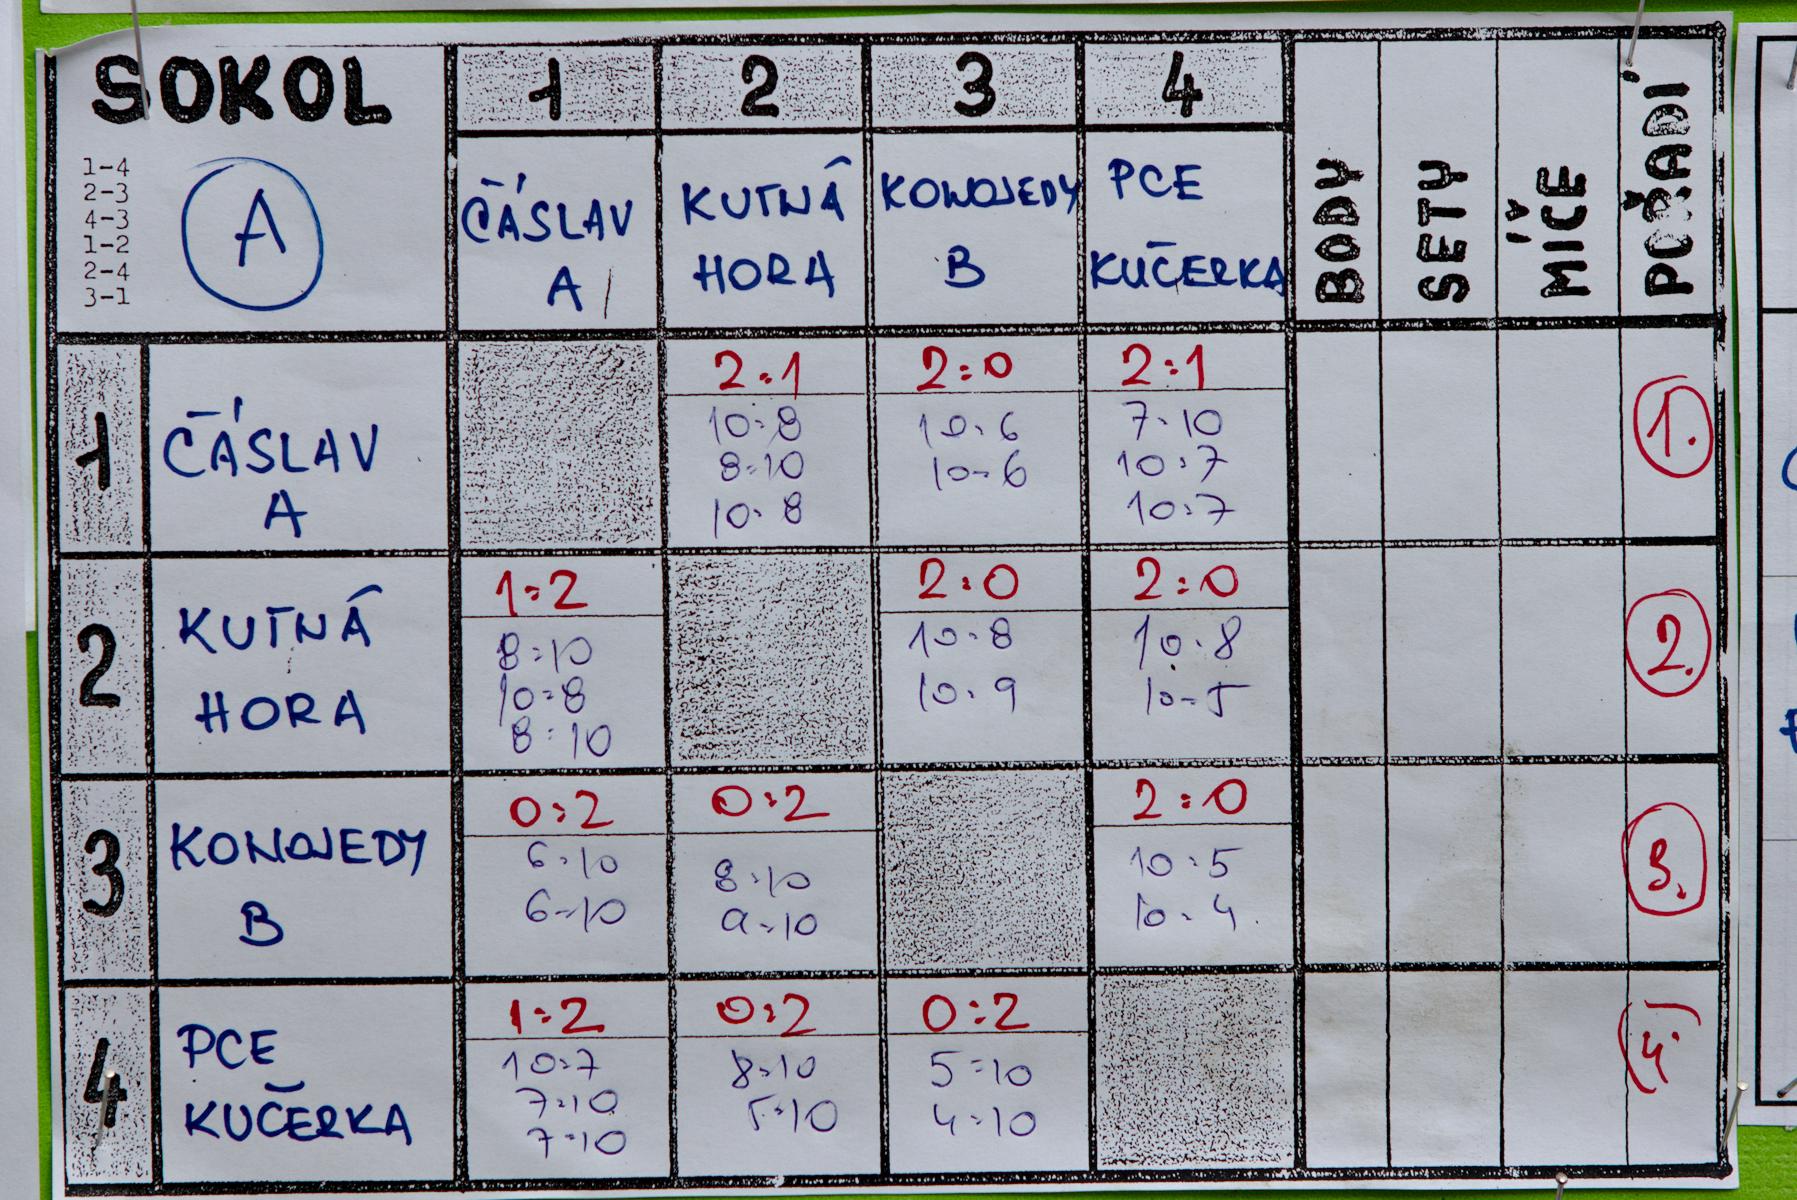 SOKOL
1-4
2-3
4-3
1-2
2-4
3-1
A
1
2
3
4
ČÁSLAV
A
KUTNÁ
HORA
KONOJEDY
B
PCE
KUČERKA
BODY
SETY
MÍČE
POŘADÍ
1
ČÁSLAV
A
2:1
10:8
8:10
10:8
2:0
10:6
10:6
2:1
7:10
10:7
10:7
1.
2
KUTNÁ
HORA
1:2
8:10
10:8
8:10
2:0
10:8
10:9
2:0
10:8
10:5
2.
3
KONOJEDY
B
0:2
6:10
6:10
0:2
8:10
9:10
2:0
10:5
10:4
3.
4
PCE
KUČERKA
1:2
10:7
7:10
7:10
0:2
8:10
5:10
0:2
5:10
4:10
4.